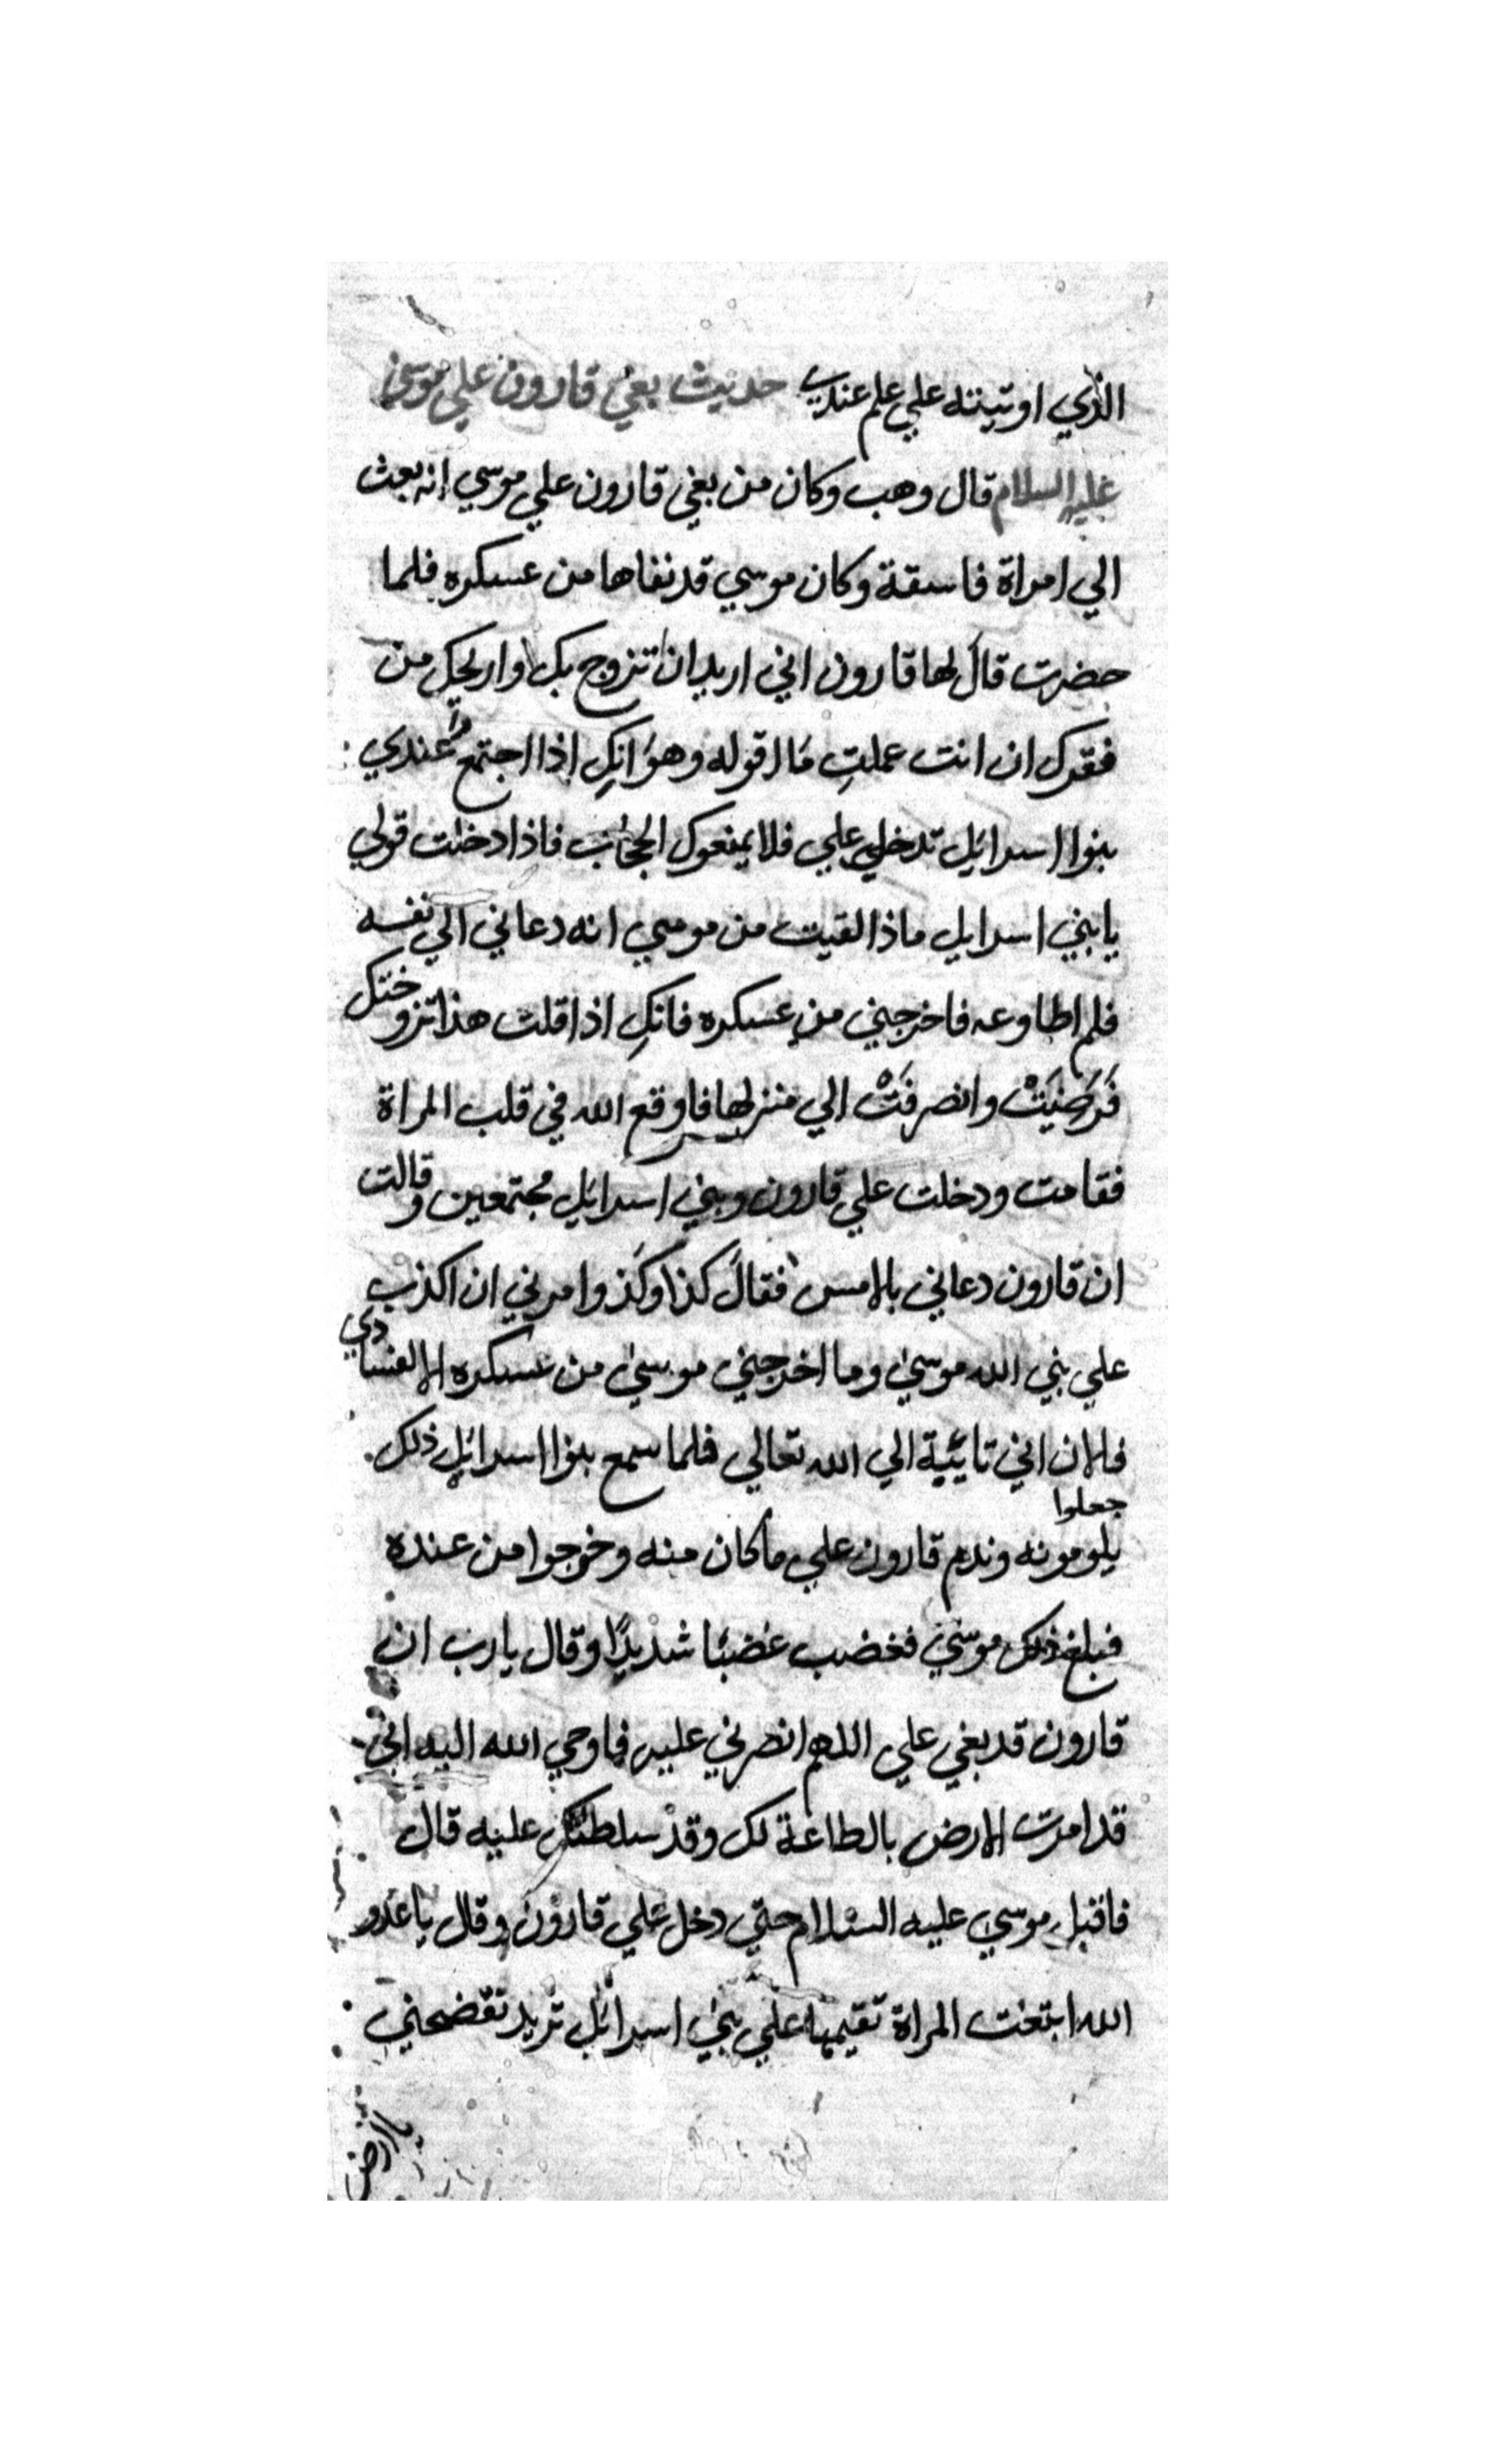 الذي اوتيته علي علم عندي حديث بغي قارون علي موسى
عليه السلام قال وهب وكان من بغي قارون علي موسي انه بعث
الي امراة فاسقة وكان موسي قد نفاها من عسكره فلما
حضرت قال لها قارون اني اريد ان اتزوج بك واريحك من
فقرك ان انت عملتِ ما اقوله وهو انكِ اذا اجتمعوا عندي
بنوا اسرائيل تدخلي علي فلا يمنعوك الحجاب فاذا دخلت قولي
يا بني اسرايل ماذا لقيت من موسي انه دعاني الي نفسه
فلم اطاوعه فاخرجني من عسكره فانكِ اذا قلت هذا تزوختك
فَرَضِيَتْ وانصرفَتْ الي منزلها فاوقع الله في قلب المراة
فقامت ودخلت علي قارون وبني اسرائيل مجتمعين وقالت
ان قارون دعاني بالامس فقال كذا وكذ وامرني ان اكذب
علي نبي الله موسىٰ وما اخرجني موسىٰ من عسكره الا لفسادي
فالان اني تائيبة الي الله تعالي فلما سمع بنوا اسرائيل ذلك
جعلوا
يلومونه وندم قارون علي ما كان منه وخرجوا من عنده
فبلغ ذلك موسىٰ فغضب غضبًا شديدًا وقال يارب ان
قارون قد بغي علي اللهم انصرني عليه فاوحي الله اليه اني
قد امرت الارض بالطاعة لك وقد سلطتك عليه قال
فاقبل موسي عليه السلام حتي دخل علي قارون وقال يا عدو
الله ابتعثت المراة تقيمها علي بني اسرائيل تريد تفضحني
يا ارض